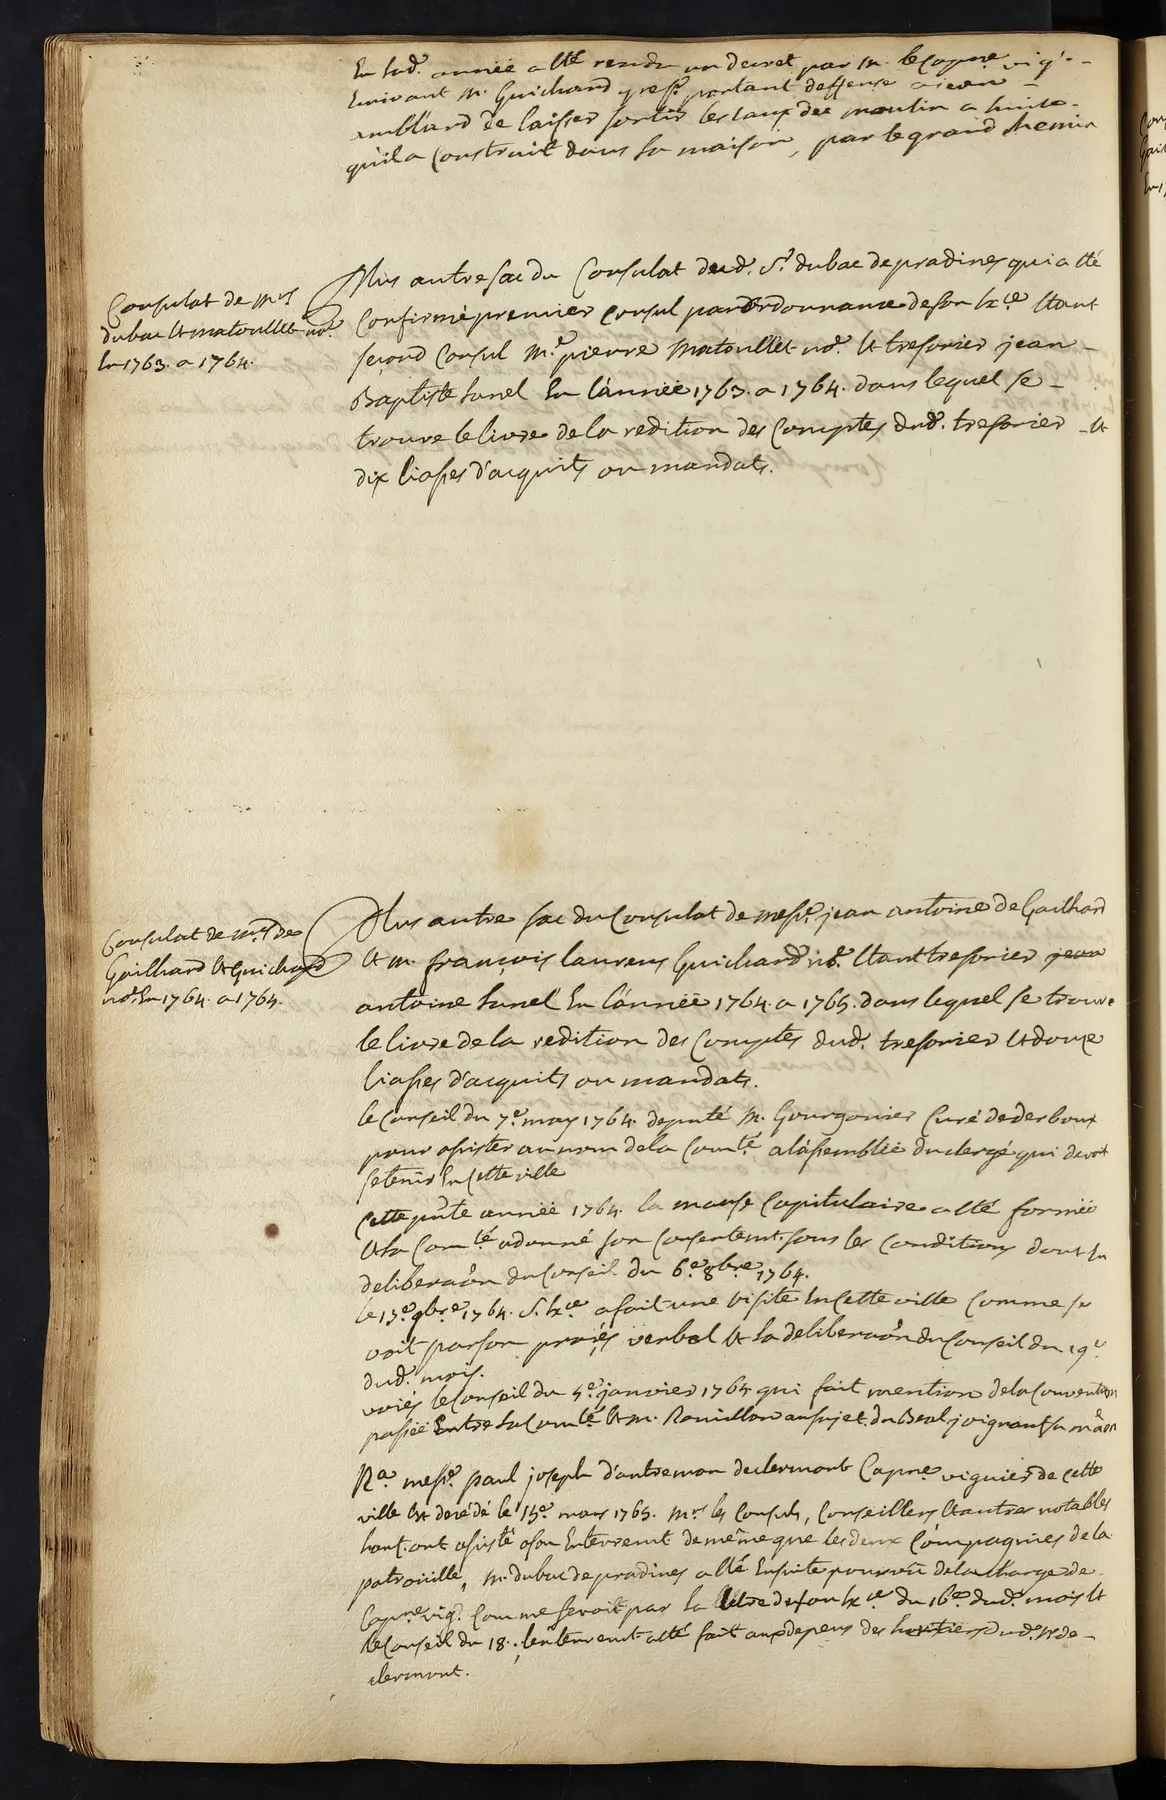 En lad. année a été rendu un decret par m. le capne. vig.
Ecrivant m. Guichard greff. portant deffense a jean
amblard de laisser sortir les eaux du moulin a huile
qu'il a construit dans sa maison, par le grand chemin
Consulat de mrs
dubac et matoullet no.
En 1763. a 1764.
Plus autre sac du Consulat dud. Sr. dubac de pradines qui a été
Confirmé premier Consul par ordonnance de son Exce. Etant
second Consul Me. pierre Matoullet no. et tresorier jean
Baptiste sanel En l'année 1763. a 1764. dans lequel se
trouve le livre de la redition des Comptes dud. tresorier et
dix liasses d'acquits ou mandats.
Consulat de mrs de
Gailhard et Guichard
no. En 1764. a 1765.
Plus autre sac du Consulat de messe. jean antoine de Gailhard
et m. françois laurens Guichard no. Etant tresorier jean
antoine sanel En l'année 1764. a 1765. dans lequel se trouve
le livre de la redition des Comptes dud. tresorier et douze
liasses d'acquits ou mandats.
le Conseil du 7e. may 1764. deputé M. Gourgonier Curé de derboux
pour assister au nom de la Comté. a l'assemblée du clergé qui devoit
se tenir En cette ville
Cette pnte année 1764. la manse Capitulaire a été formée
et la Comté. a donné son consentemt. sous les conditions dont la
deliberaôn du Conseil du 6e. 8bre. 1764.
le 13e. 9bre. 1764. S. Exce. a fait une visite En cette ville comme se
voit par son procés verbal et la deliberaôn du Conseil du 19e.
dud. mois.
voiés le Conseil du 4e. janvier 1764 qui fait mention de la Convention
passée Entre la Comté. et m. Rouillon au sujet du Beal joignant sa maôn
Na. messe. paul joseph d'antremon de clermont Capne. viguier de cette
ville est decédé le 15e. mars 1765. Mrs. les Consuls, Conseillers et autres notables
hant. ont assisté a son Enterremt. de même que les deux Compagnies de la
patroüille, m. dubac de pradines a été Ensuite pourvû de la charge de
Capne. vig. Comme se voit par la lettre de son Exce. du 16e. dud. mois et
le Conseil du 18., l'enterremt. a été fait aux depens des heritiers dud. Sr. de
clermont.